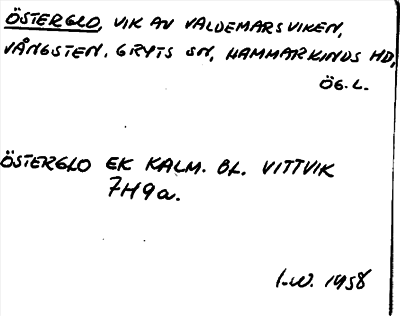 ÖSTERGLO, VIK AV VALDEMARSVIKEN,
VÅNGSTEN, GRYTS SN, HAMMARKINDS HD,
ÖG.L.
ÖSTERGLO EK KALM. BL. VITTVIK
7H9a.
I.W. 1958